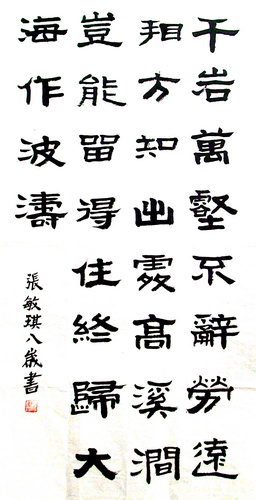 千岩萬壑不辭勞遠
相方知出處高溪澗
豈能留得住終歸大
海作波濤
張敏琪八歲書